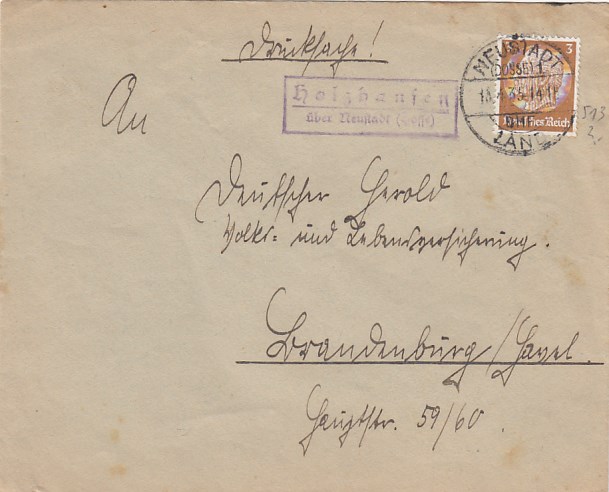 Drucksache!
NEUSTADT
(DOSSE) 1
LAND
3
Deutsches Reich
Holzhausen
über Neustadt (Dosse)
513
2,-
An
Deutscher Herold
Volks- und Lebensversicherung.
Brandenburg/Havel.
Hauptstr. 59/60.